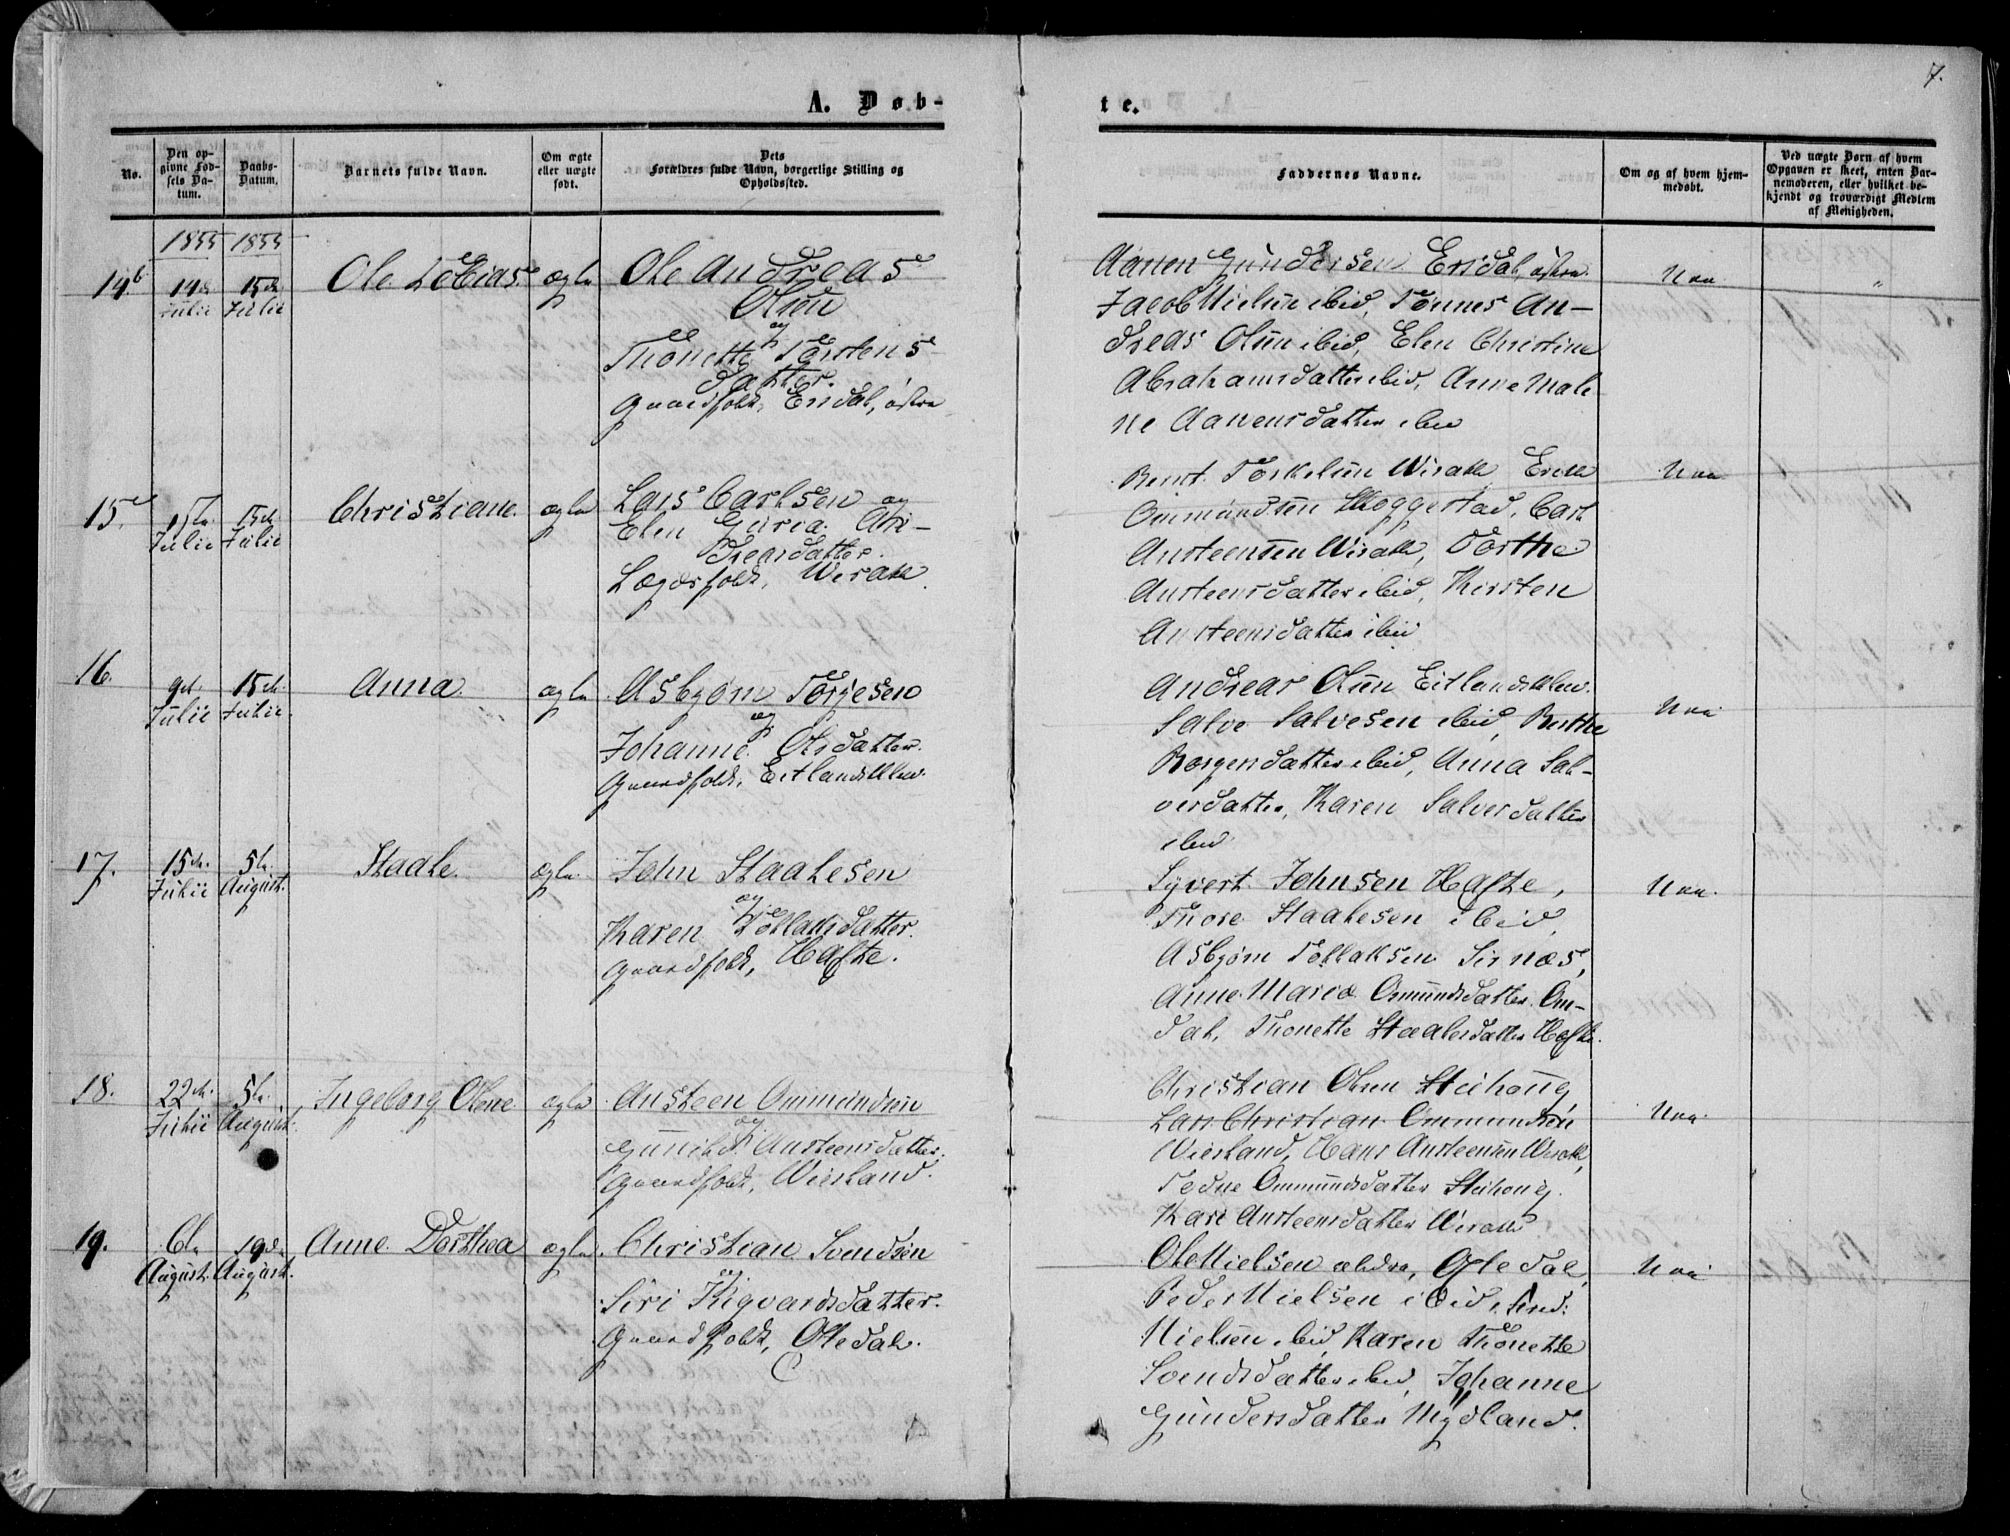 7.
A. Døb-
te.
No.
Den op-
givne Fød-
sels Da-
tum.
Daabs-
Datum.
Barnets fulde Navn.
Om ægte
eller uægte
født.
Dets
Forældres fulde Navn, borgerlige Stilling og
Opholdssted.
Faddernes Navne.
Om og af hvem hjem-
medøbt.
Ved uægte Børn af hvem
Opgaven er skeet, enten Bar-
nemoderen, eller hvilket be-
kjendt og troværdigt Medlem
af Menigheden.
1855 1855
14.
Julii
15de
Julii
Ole Tobias
ægte
Ole Andreas
Olsen
og
Thonette Torstens
datter.
Gaardfolk, Ersdal, østre
Aanen Gundersen Ersdal, østre
Jacob Nielsen ibid, Tønnes An-
dreas Olsen ibid, Elen Christine
Abrahamsdatter ibid, Anne Male
ne Aanensdatter ibid
Naa
15.
Julii
15de
Julii
Christiane.
ægte
Lars Carlsen og
Elen Guria An-
dreasdatter.
Lægdsfolk, Wirak
Bernt Torkelsen Wirak
Ommundsen Skoggestad, Carl
Austeensen Wirak, Dorthe
Austeensdatter ibid, Kirsten
Austeensdatter ibid
16.
9de
Julii
15de
Julii
Anna
ægte
Asbjørn Torjesen
og
Johanne Olsdatter.
Gaardfolk,
Andreas Olsen
Salve Salvesen ibid, Berthe
Børgesdatter ibid, Anna Sal-
vesdatter, Karen Salvesdatter
ibid
17.
15de
Julii
5te
August.
Staale.
ægte
John Staalesen
og
Karen Tollaksdatter.
Gaardfolk, Hafte.
Syvert Johnsen Hafte,
Thore Staalesen ibid,
Asbjørn Tollaksen Sirnæs,
Anne Maria Omundsdatter Om-
dal, Thonette Staalesdatter Hafte.
18.
22de
Julii
5te
August.
Ingeborg Olene
ægte
Austeen Ommundsen
og
Gunild Austeensdatter.
Gaardfolk, Wiersland.
Christian Olsen
Lars Christian Ommundsen
Wiersland, Hans Austeensen Wirak,
Ommundsdatter
Kari Austeensdatter Wirak
19.
6te
August.
19de
August.
Anne Dorthea
ægte
Christian Svendsen
og
Siri Sigvardsdatter.
Gaardfolk, Olledal.
Ole Nielsen ældre, Olledal,
Peder Nielsen ibid, Svend
Nielsen ibid, Karen Thonette
Svendsdatter ibid, Johanne
Gundersdatter Mydland.